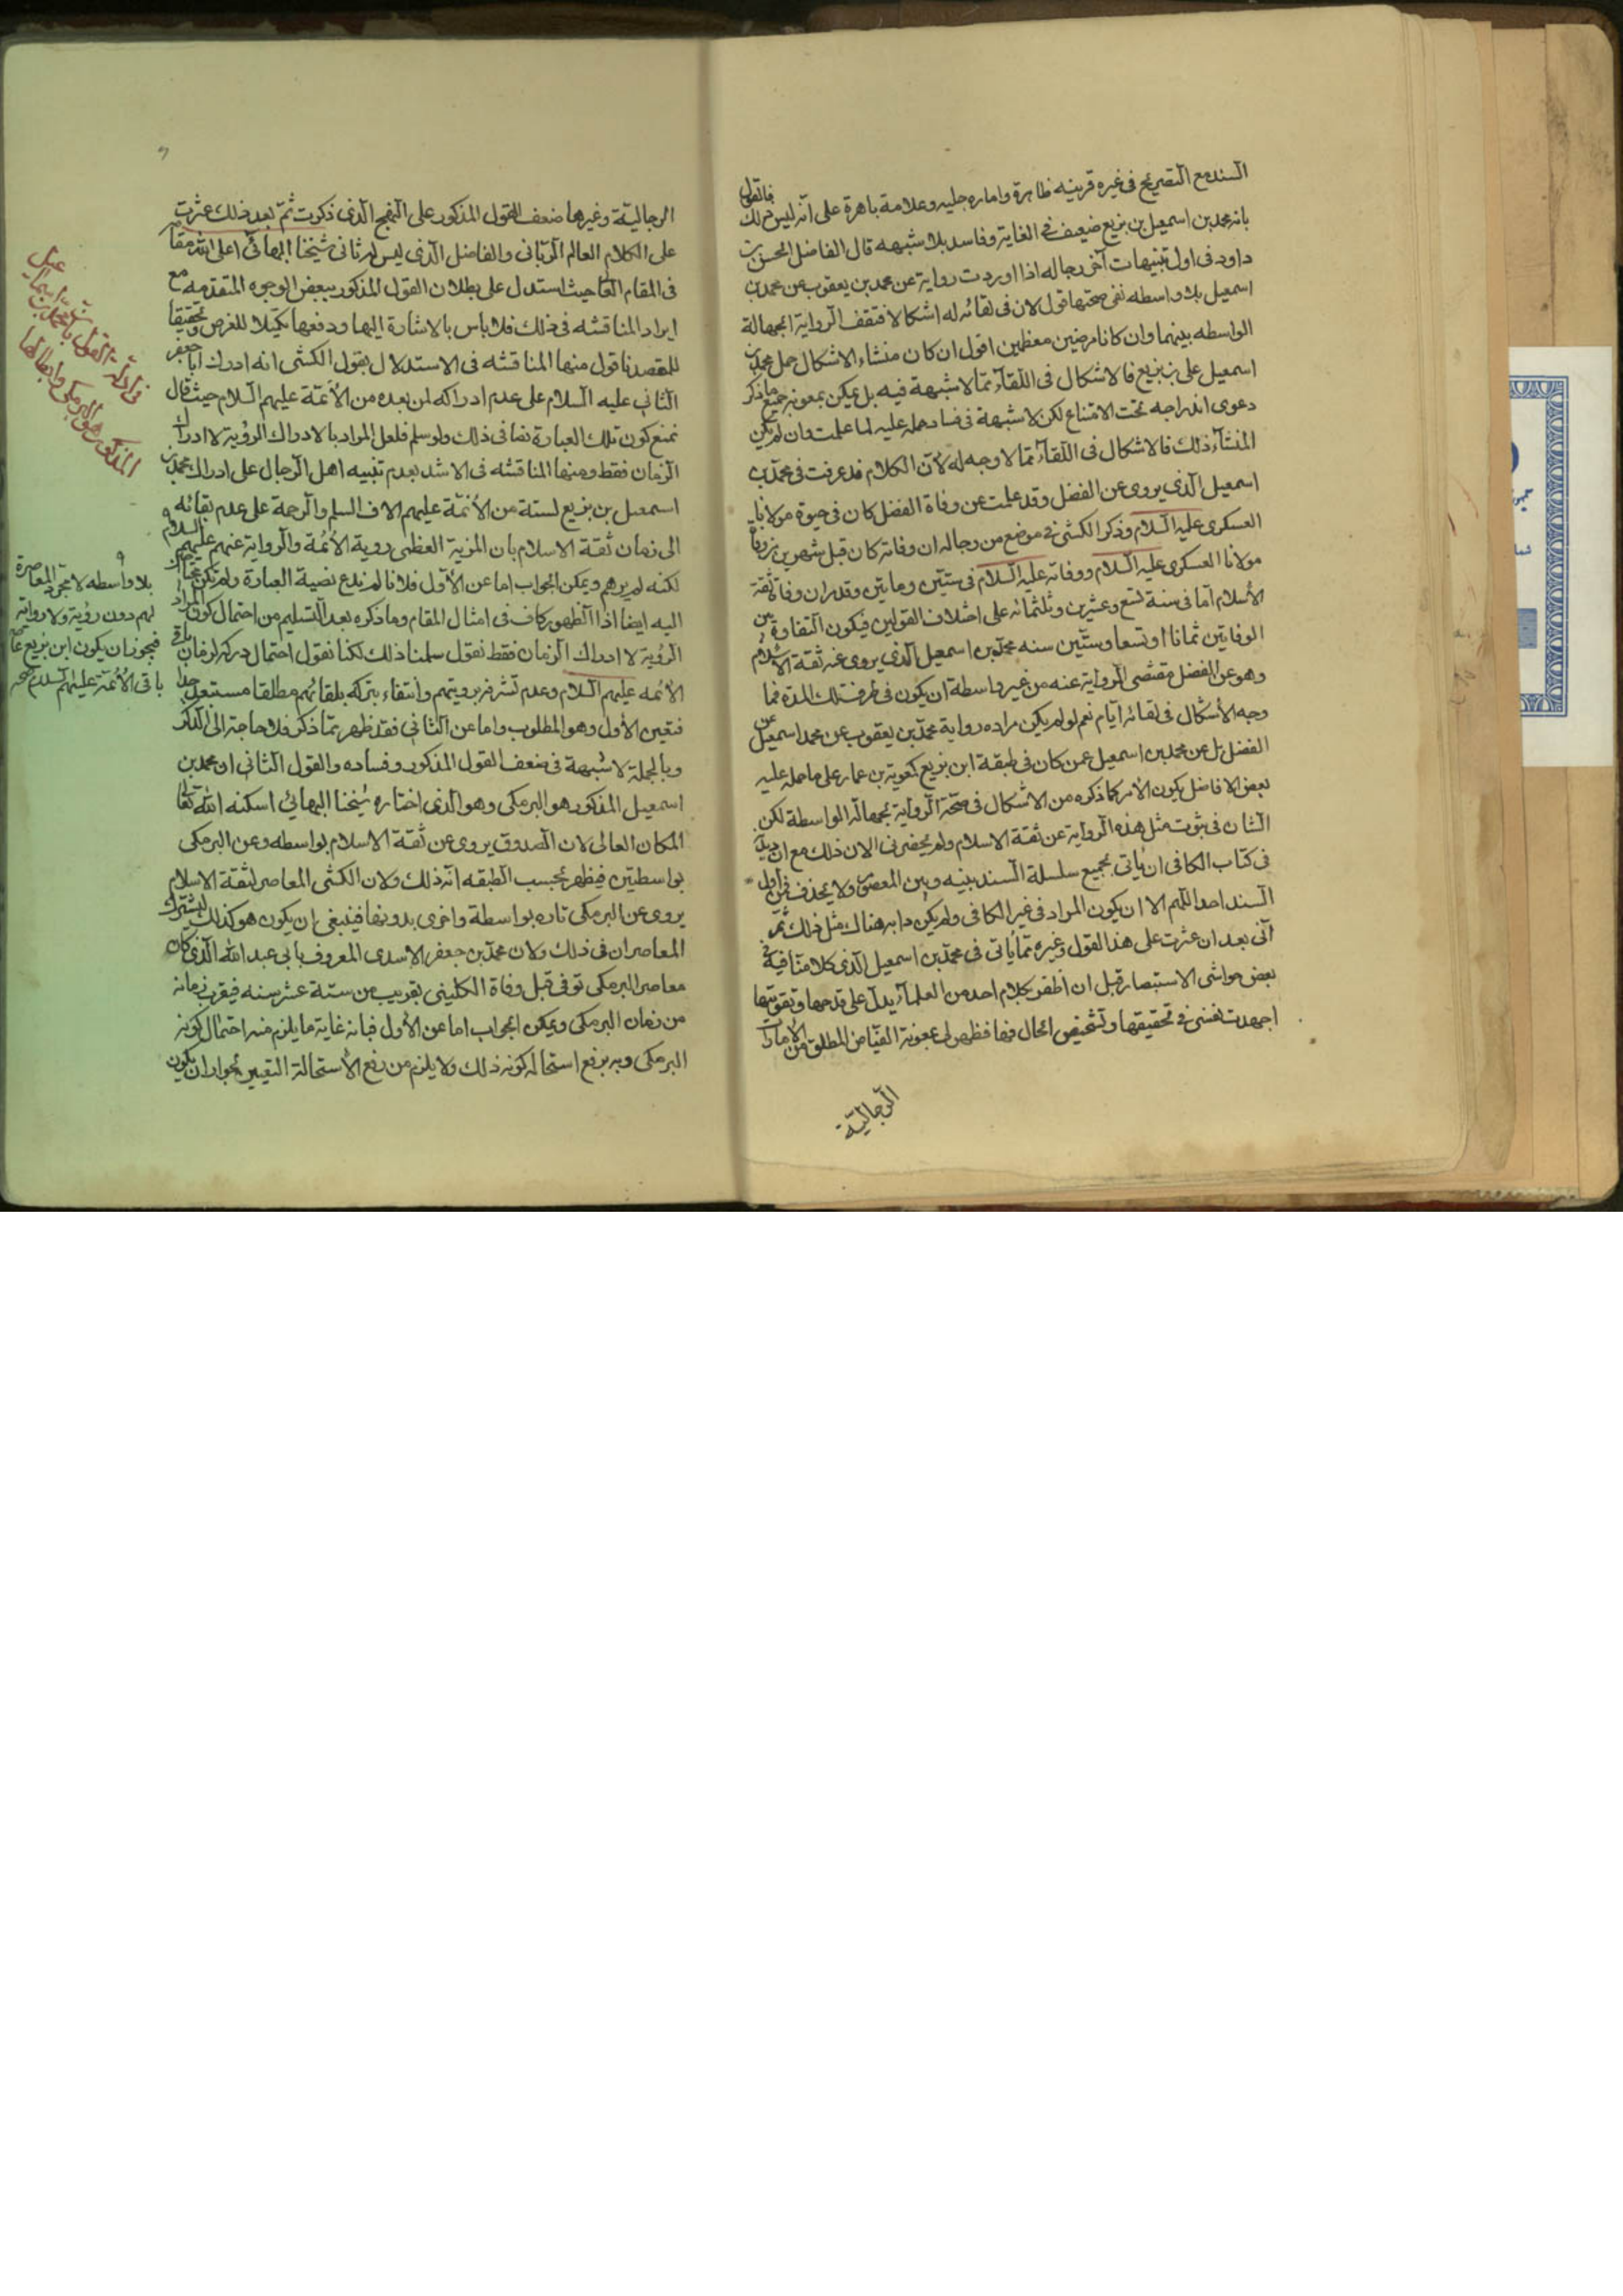 السند مع التصريح في غيره قرينه ظاهرة واماره جليه وعلامة باهرة على انه ليس كذلك فالقول
بانه محمد بن اسمعيل بن بزيع ضعيف في الغاية وفاسد بلا شبهه قال الفاضل الحسن بن
داود في اول تنبيهات آخر رجاله اذا اوردت رواية عن محمد بن يعقوب عن محمد بن
اسمعيل بلا واسطه ففي صحتها قول لان في لقائه له اشكالا فتقف الرواية لجهالة
الواسطه بينهما وان كانا مرضيين معظمين اقول ان كان منشاء الاشكال حمل محمد بن
اسمعيل على بن بزيع فالاشكال في اللقاء مما لا شبهة فيه بل يمكن بمعونة جميع ما ذكر
دعوى اندراجه تحت الامتناع لكن لا شبهة في فساد حمله عليه لما علمت وان لم يكن
المنشاء ذلك فالاشكال في اللقاء مما لا وجه له لان الكلام قد عرفت في محمد بن
اسمعيل الذي يروى عن الفضل وقد علمت عن وفاة الفضل كان في حيوة مولانا
العسكرى عليه السلام وذكر الكشى في موضع من رجاله ان وفاته كان قبل شهرين من وفاة
مولانا العسكرى عليه السلام ووفاته عليه السلام في ستين ومايتين وقد مر ان وفاة ثقة
الاسلام اما في سنة تسع وعشرين وثلثمائه على اختلاف القولين فيكون التفاوة بين
الوفاتين ثمانا او تسعا وستين سنه محمد بن اسمعيل الذي يروى عنه ثقة الاسلام
وهو عن الفضل مقتضى الرواية عنه من غير واسطة ان يكون في طرف تلك المدة فما
وجه الاشكال في لقائه اياه نعم لو لم يكن مراده رواية محمد بن يعقوب عن محمد اسمعيل عن
الفضل بل عن محمد بن اسمعيل عمن كان في طبقة ابن بزيع كمعوية بن عمار على ما حمله عليه
بعض الافاضل يكون الامر كما ذكره من الاشكال في صحة الرواية بجهالة الواسطة لكن
الشان في ثبوت مثل هذه الرواية عن ثقة الاسلام ولم يحضرني الان ذلك مع ان ديدنه
في كتاب الكافي ان ياتي بجميع سلسلة السند بينه وبين المعصوم ولا يحذف من اول
السند احدا اللهم الا ان يكون المراد في غير الكافي ولم يكن دابه هناك مثل ذلك ثم
اني بعد ان عثرت على هذا القول وغيره مما ياتي في محمد بن اسمعيل الذي كلامنا فيه في
بعض حواشى الاستبصار قبل ان اظفر بكلام احد من العلماء يدل على قدحها وتقويتها
اجهدت نفسي في تحقيقها وتشخيص الحال فيها فظهر لى بمعونة الفياض المطلق من الامارات
الرجالية
الرجالية وغيرها ضعف القول المذكور على النهج الذي ذكرت ثم بعد ذلك عثرت
على الكلام العالم الرباني والفاضل الذي ليس له ثاني شيخنا البهائي اعلى الله مقامه
في المقام العا حيث استدل على بطلان القول المذكور ببعض الوجوه المتقدمه مع
ايراد المناقشه في ذلك فلا باس بالاشارة اليها ودفعها تكميلا للغرض وتحقيقا
للمقصد فاقول منها المناقشه في الاستدلال بقول الكشى انه ادرك ابا جعفر
الثاني عليه السلام على عدم ادراكه لمن بعده من الائمة عليهم السلام حيث قال
نمنع كون تلك العبارة نصا في ذلك ولو سلم فلعل المراد بالادراك الرؤية لا ادراك
الزمان فقط ومنها المناقشه في الاشد بعدم تنبيه اهل الرجال على ادراك محمد بن
اسمعيل بن بزيع لستة من الائمة عليهم الاف السلم والرحمة على عدم بقائه
الى زمان ثقة الاسلام بان المزية العظمى روية الائمة والرواية عنهم عليهم السلام و
لكنه لم يرهم ويمكن الجواب اما عن الاول فلانا لم ندع نصية العبارة ولم يكن محتاجا
اليه ايضا اذا الظهور كاف في امثال المقام وما ذكره بعد التسليم من احتمال كون المراد
الرؤية لا ادراك الزمان فقط نقول سلمنا ذلك لكنا نقول احتمال دركه لزمان باقي
الائمه عليهم السلام وعدم تشرفه برويتهم وانتفاء بتركه بلقائهم مطلقا مستبعد جدا
فتعين الاول وهو المطلوب واما عن الثاني فقد ظهر مما ذكر فلا حاجة الى الذكر
وبالجملة لا شبهة في ضعف القول المذكور وفساده والقول الثاني ان محمد بن
اسمعيل المذكور هو البرمكى وهو الذي اختاره شيخنا البهائي اسكنه الله تعالى
المكان العالى لان الصدوق يروى عن ثقة الاسلام بواسطه وعن البرمكى
بواسطتين فيظهر بحسب الطبقه انه ذلك ولان الكشى المعاصر لثقة الاسلام
يروى عن البرمكى تاره بواسطة واخرى بدونها فينبغى ان يكون هو كذلك ليشترك
المعاصران في ذلك ولان محمد بن جعفر الاسدى المعروف بابى عبد الله الذي كان
معاصر البرمكى توفى قبل وفاة الكليني بقريب من ستة عشر سنه فيقرب زمانه
من زمان البرمكى ويمكن الجواب اما عن الاول فبانه غاية ما يلزم منه احتمال كونه
البرمكى وبه يرفع استحالة كونه ذلك ولا يلزم من رفع الاستحالة التعيين بجواز ان يكون
في ادلة القول بان محمد بن اسمعيل
المذكور هو البرمكى وابطالها
بلا واسطه لا مجرد المعاصرة
لهم دون رؤية ولا رواية
فيجوز ان يكون ابن بزيع
باقي الائمة عليهم السلام صح